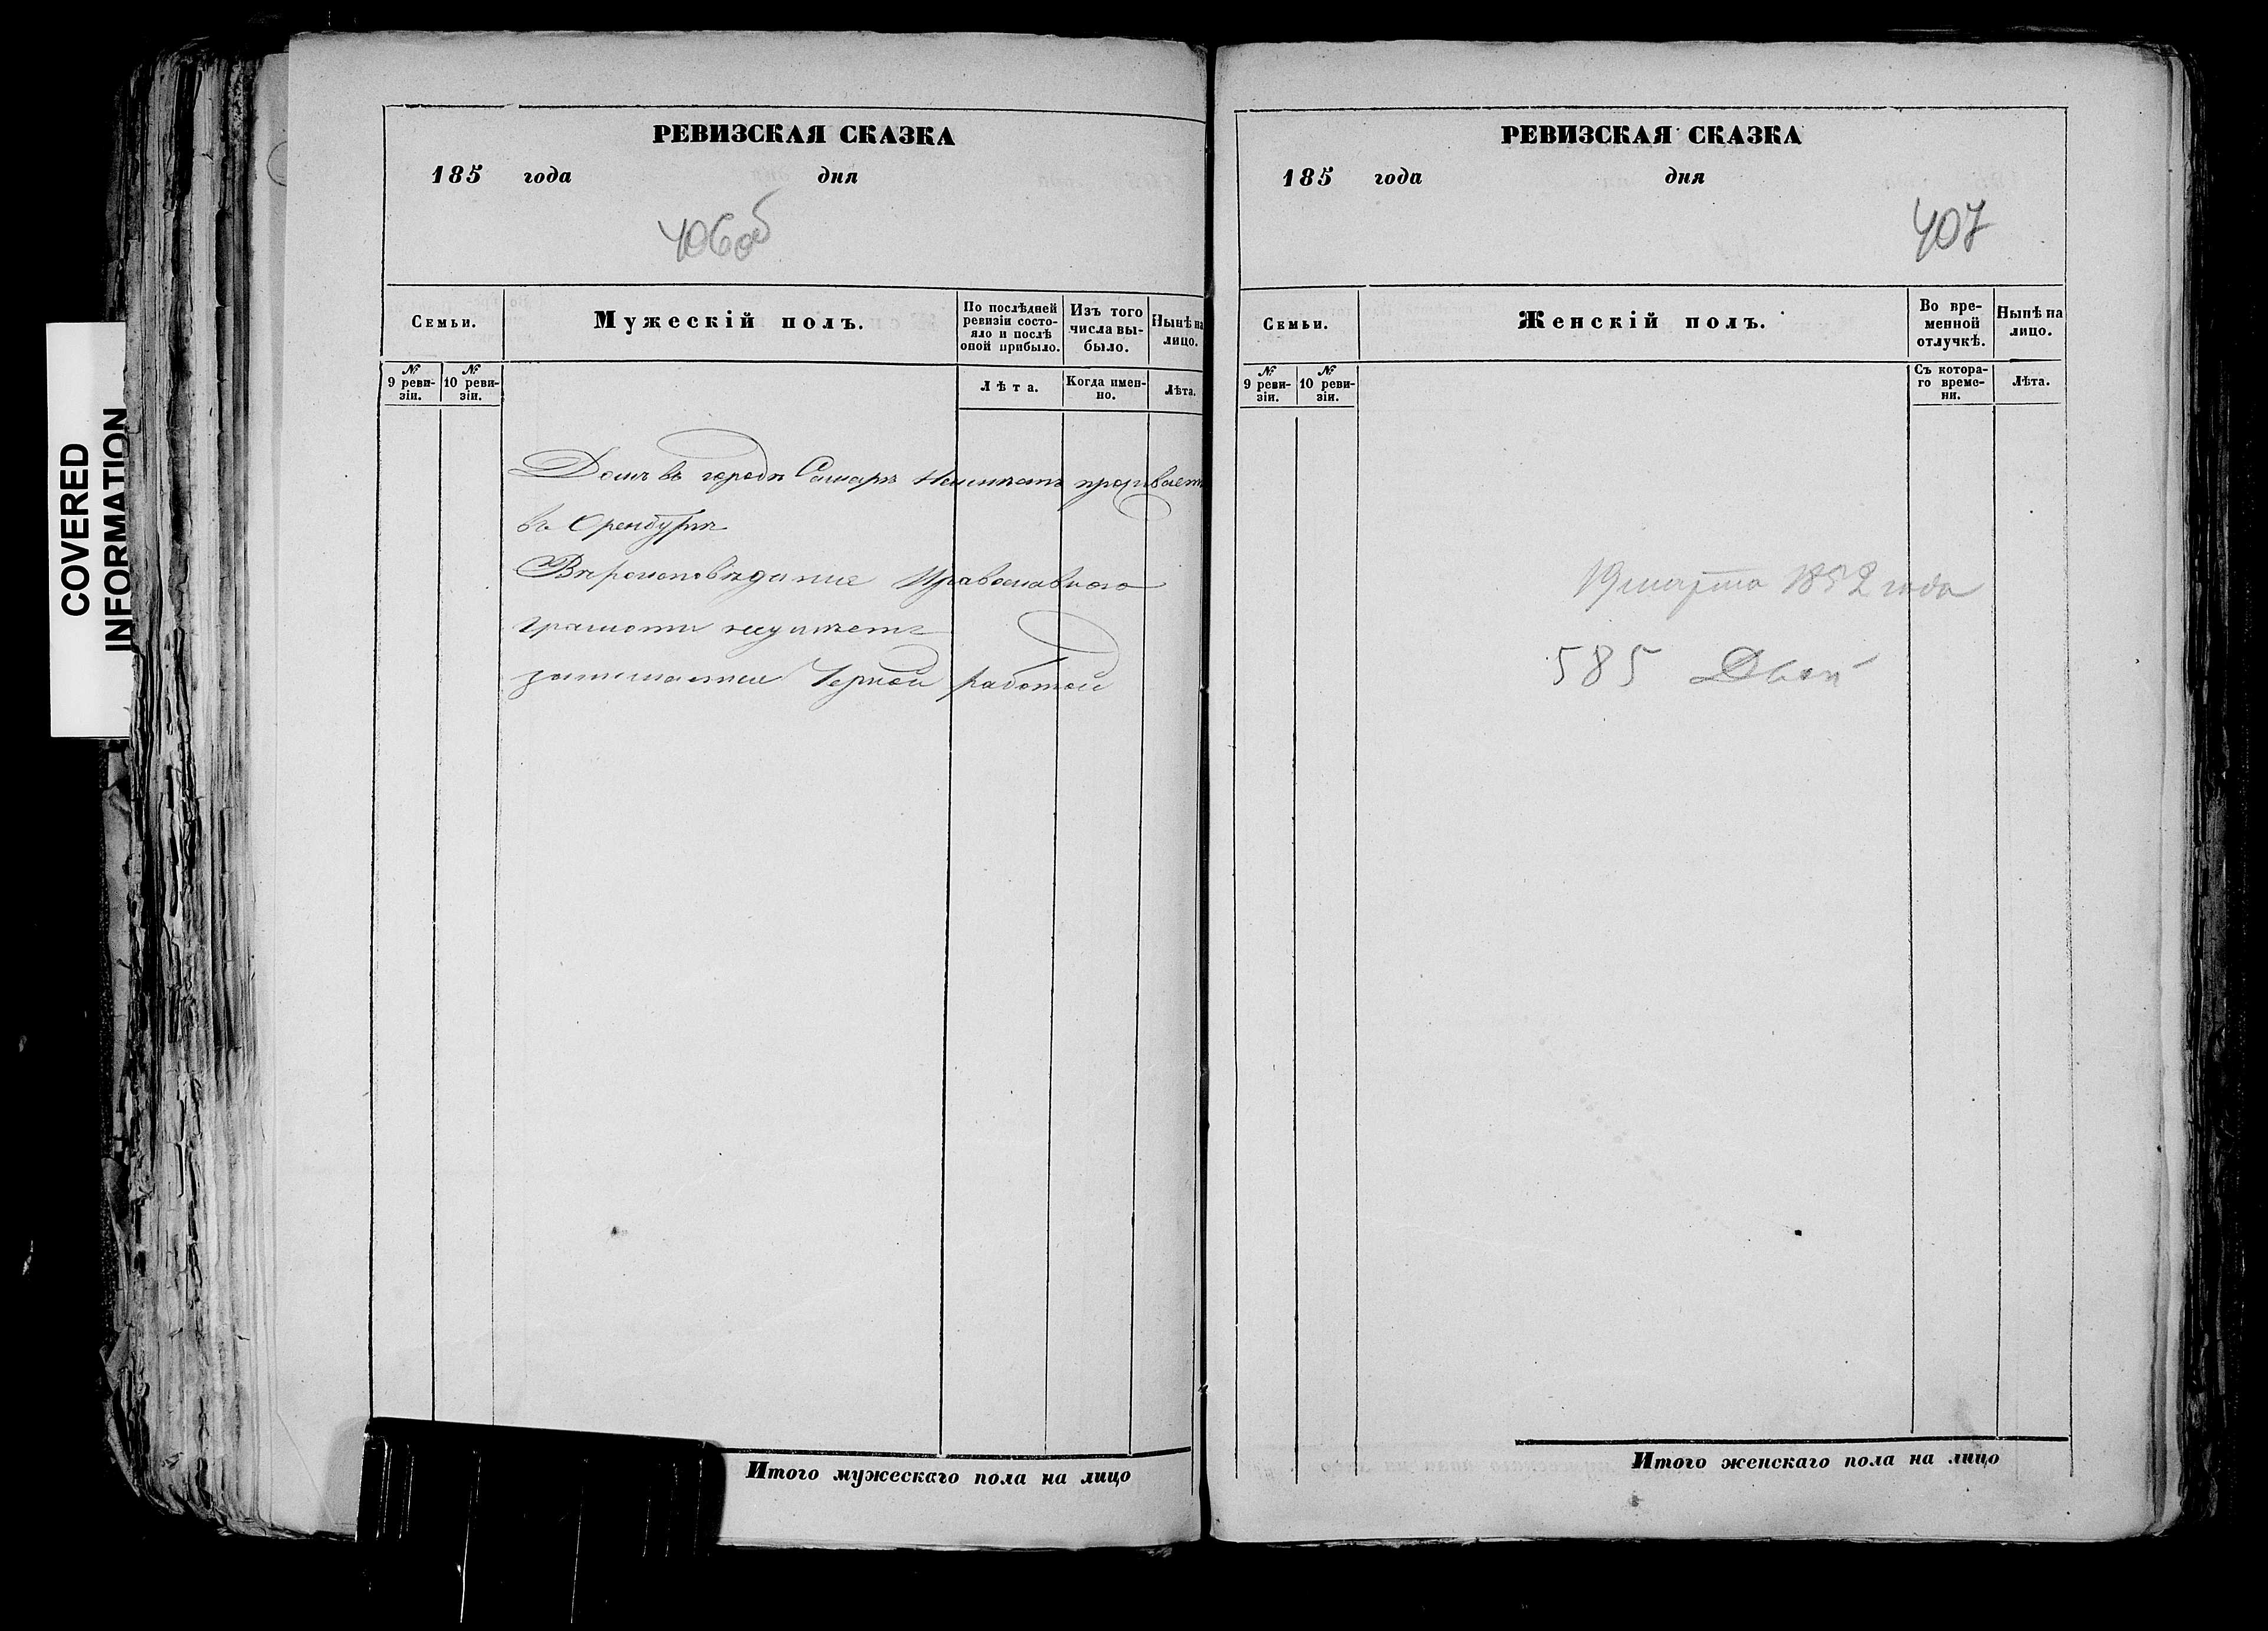 COVERED
INFORMATION
РЕВИЗСКАЯ СКАЗКА
185 года дня
406об
Семьи.
Мужескій полъ.
По послѣдней ревизіи состояло и послѣ оной прибыло.
Изъ того числа выбыло.
Нынѣ на лицо.
№ 9 ревизіи.
№ 10 ревизіи.
Лѣта.
Когда именно.
Лѣта.
Домъ въ городѣ Самарѣ Неимѣетъ проживаетъ
въ Оренбургѣ
Вѣроисповѣдание Православного
грамоти неумѣетъ
занимаетие Черной работой
Итого мужескаго пола на лицо
РЕВИЗСКАЯ СКАЗКА
185 года дня
407
Семьи.
Женскій полъ.
Во временной отлучкѣ.
Нынѣ на лицо.
№ 9 ревизіи.
№ 10 ревизіи.
Съ котораго времени.
Лѣта.
19 марта 1852 года
585
Итого женскаго пола на лицо